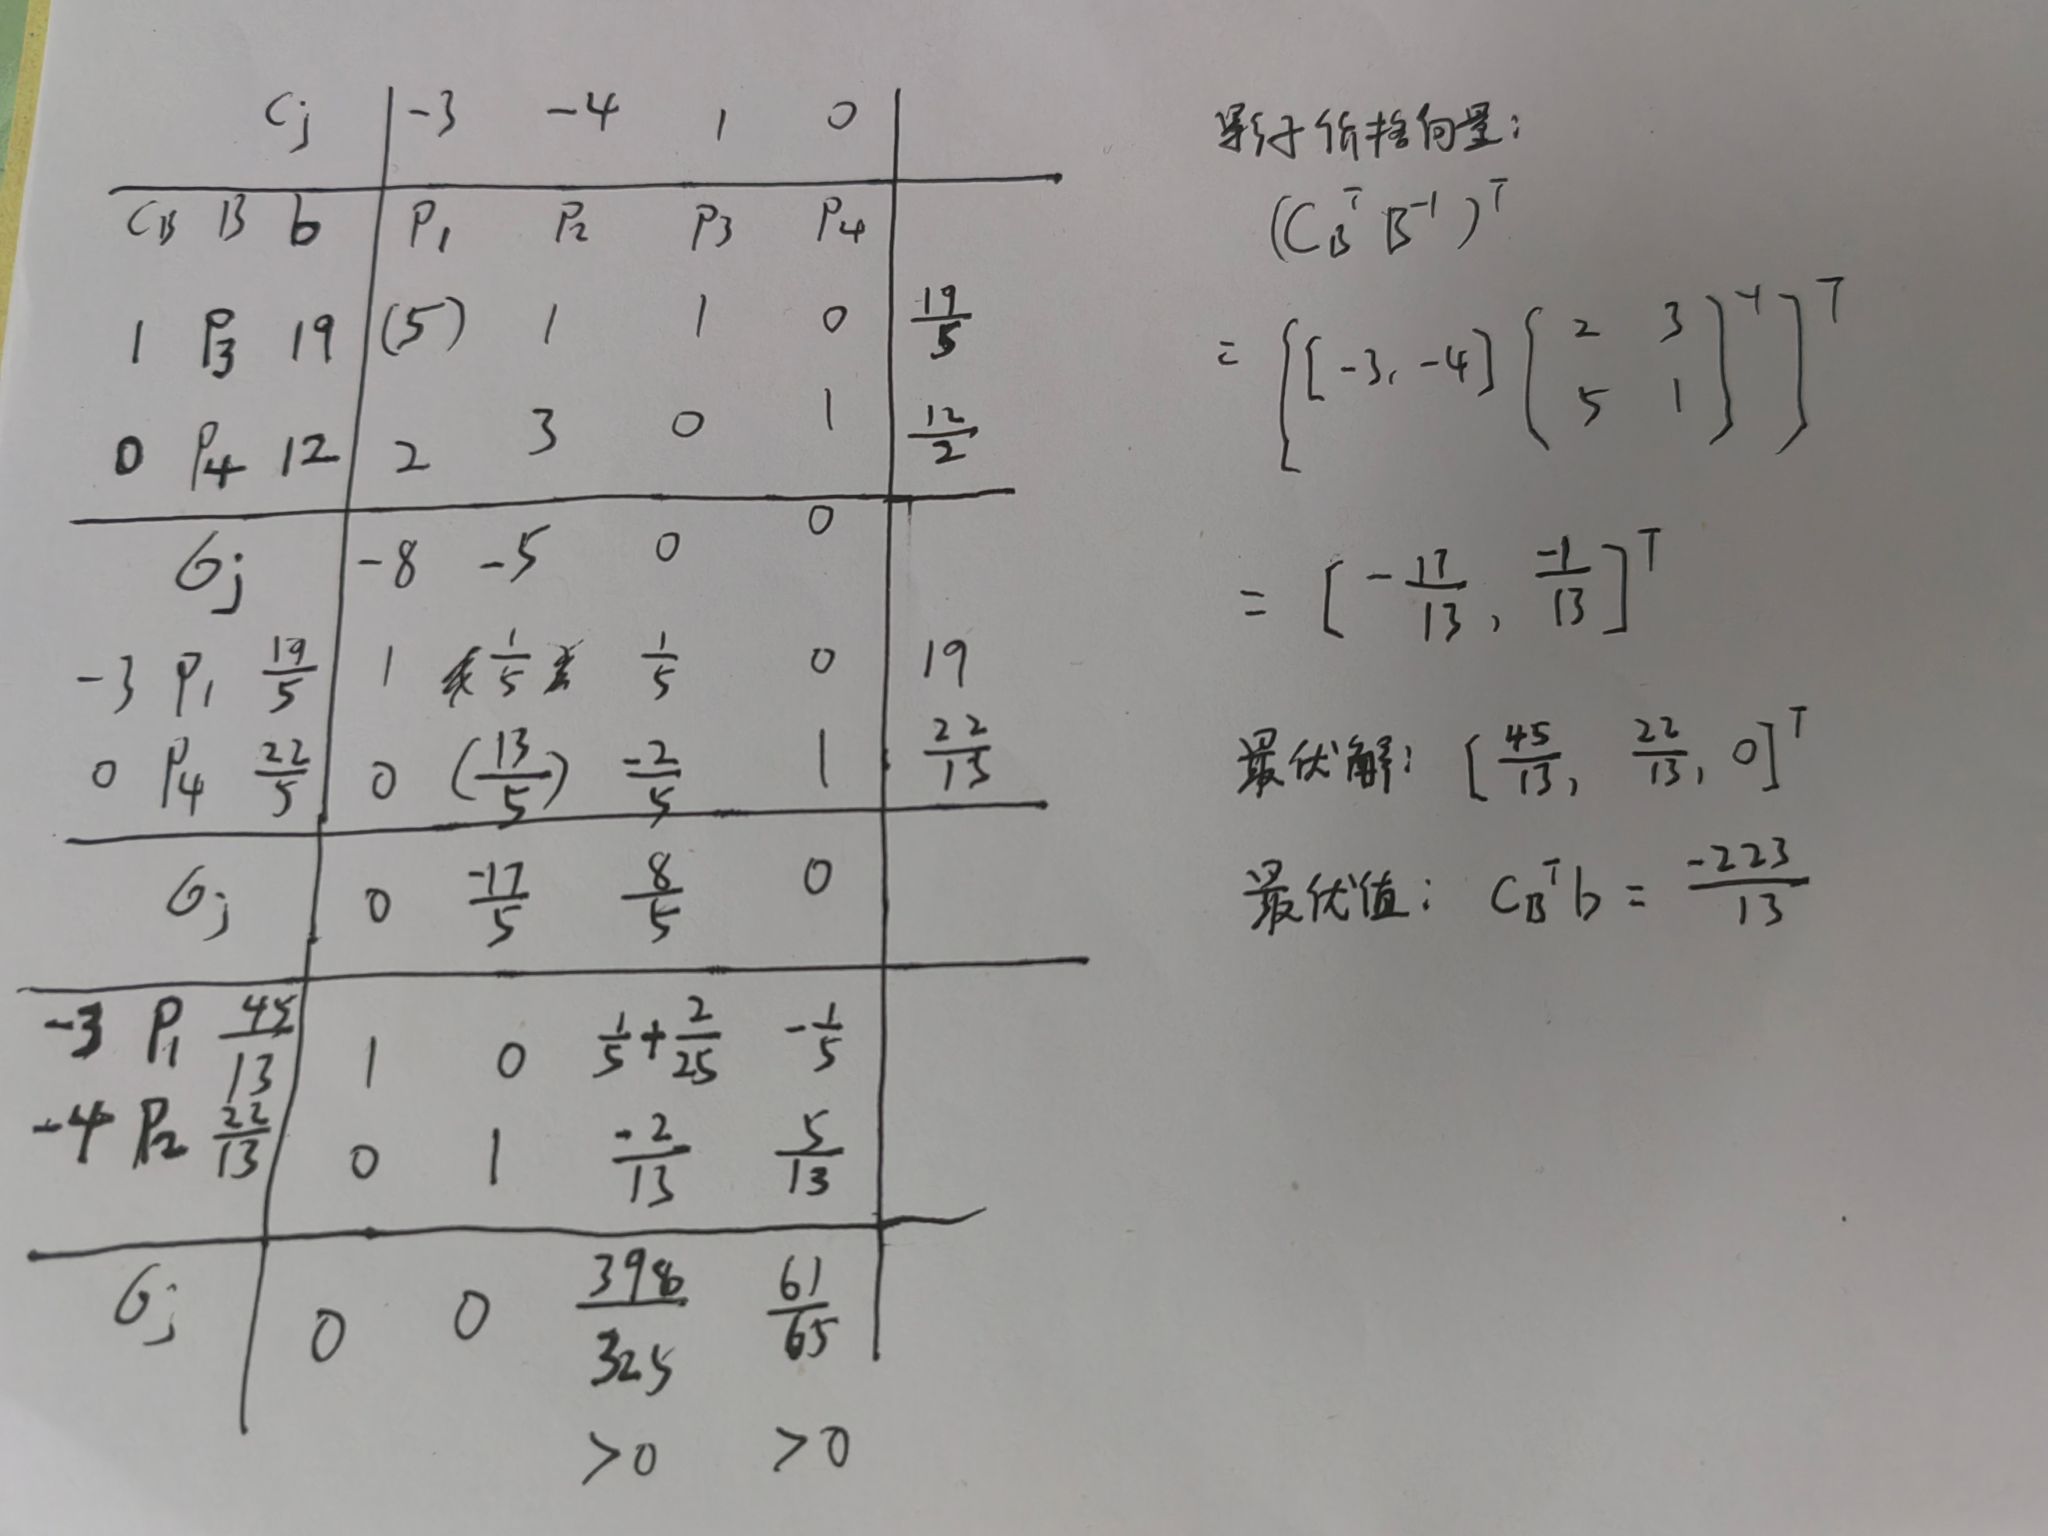 Cj -3 -4 1 0
CB B b P1 P2 P3 P4
1 P3 19 (5) 1 1 0 19/5
0 P4 12 2 3 0 1 12/2
σj -8 -5 0 0
-3 P1 19/5 1 1/5 1/5 0 19
0 P4 22/5 0 (13/5) -2/5 1 22/13
σj 0 -17/5 8/5 0
-3 P1 45/13 1 0 1/5+2/25 -1/5
-4 P2 22/13 0 1 -2/13 5/13
σj 0 0 398/325 61/65
>0 >0
影子价格向量:
(CB^T B^-1)^T
= {[-3, -4] [2 3; 5 1]^-1}^T
= [-17/13, -1/13]^T
最优解: [45/13, 22/13, 0]^T
最优值: CB^T b = -223/13